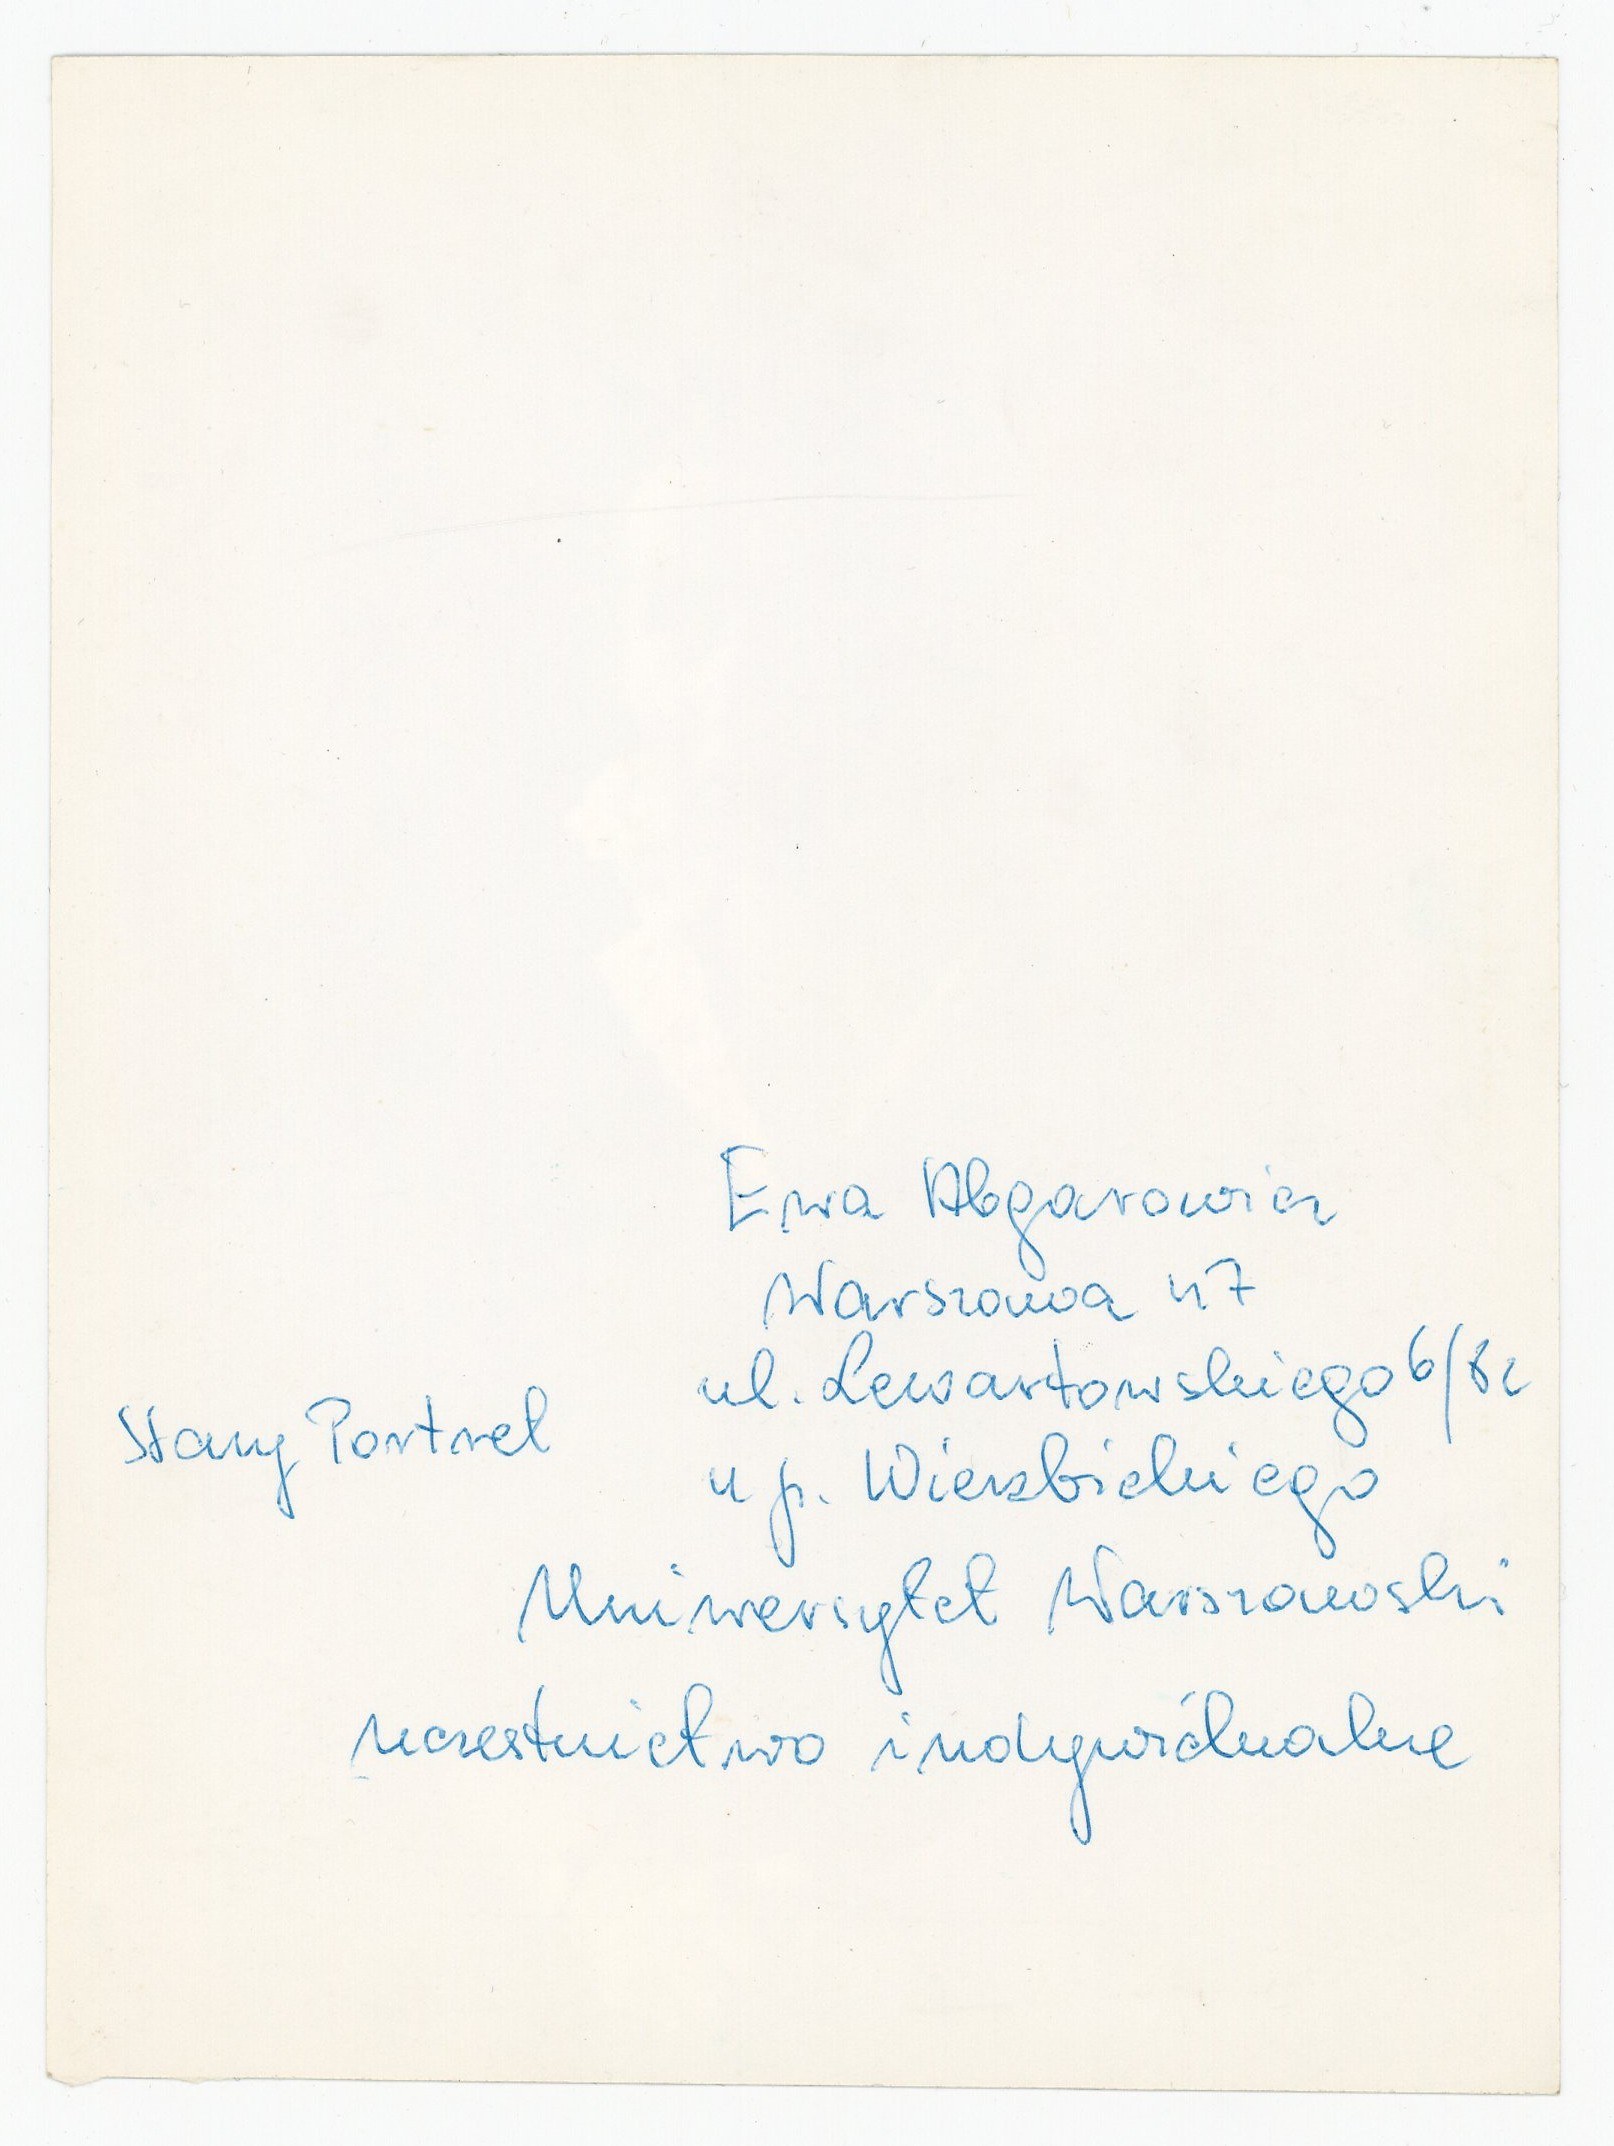 Ewa Abgarowicz
Warszawa 47
ul. Lewartowskiego 6/82
u p. Wierzbickiego
Stary Portret
Uniwersytet Warszawski
uczestnictwo indywidualne